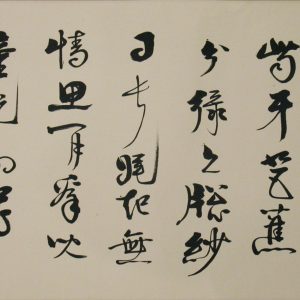 齒牙芭蕉
分綠上牕紗
日長睡起無
情思閒看兒